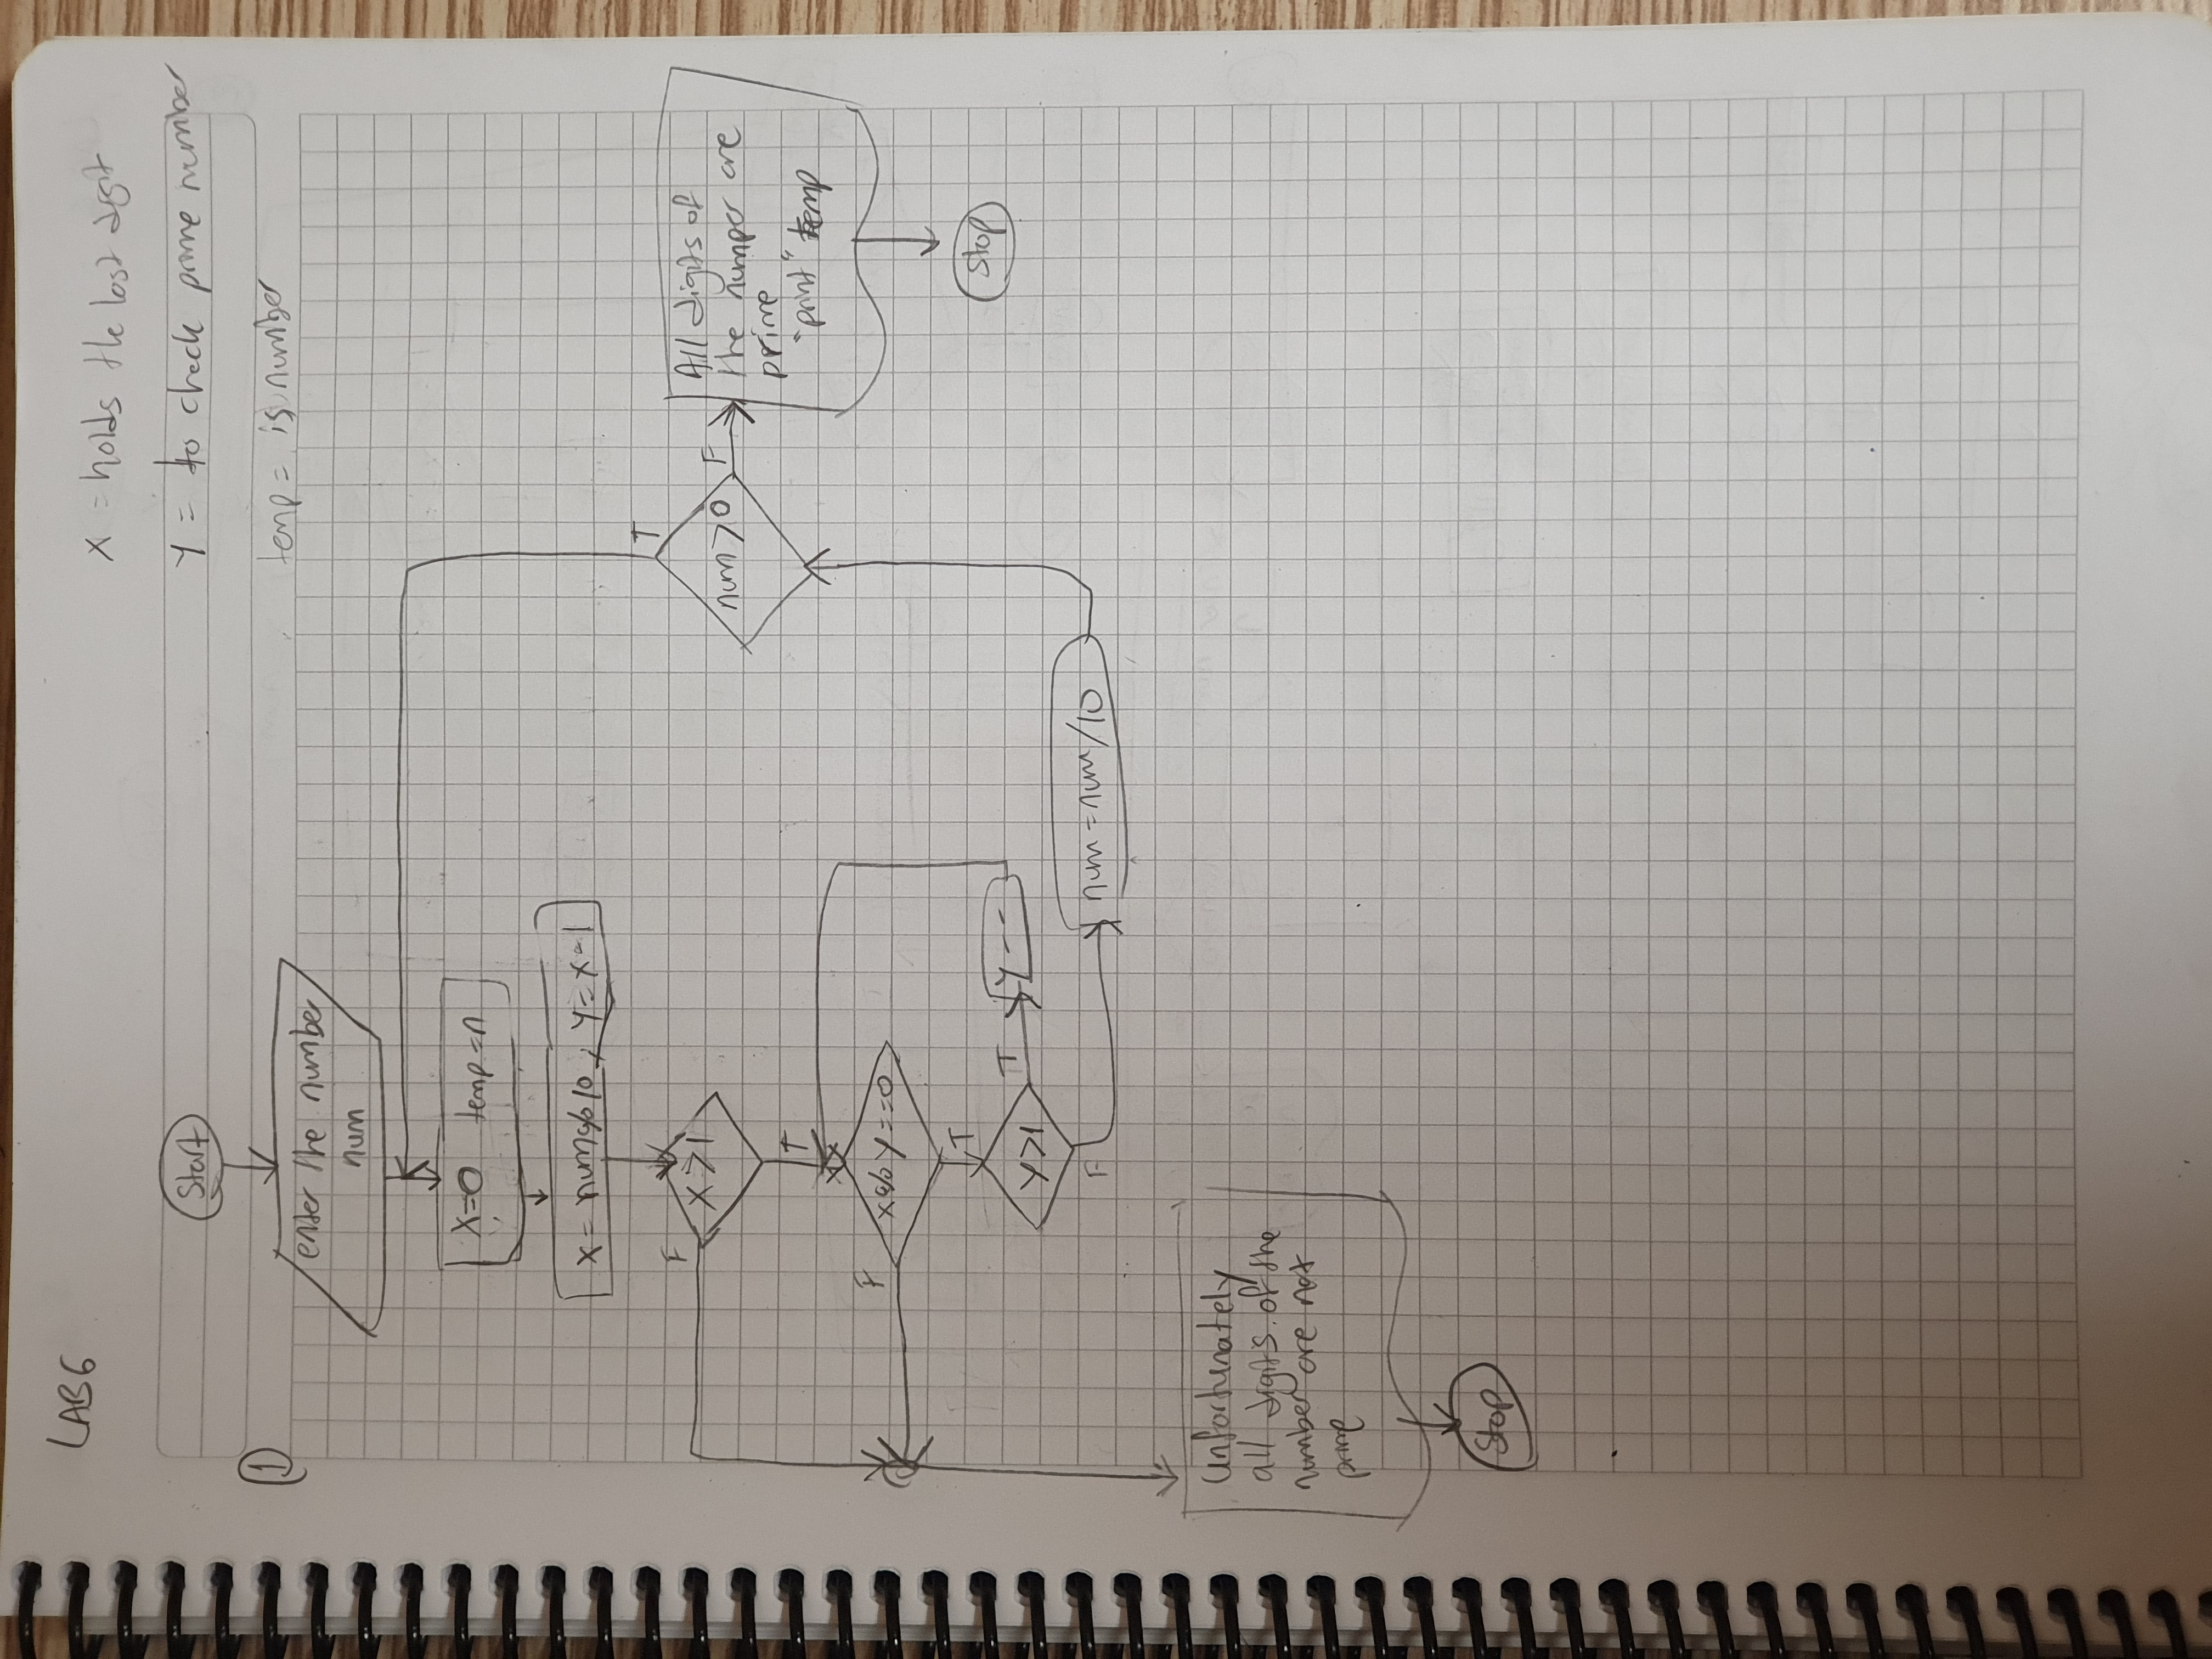 LAB6
x = holds the last digit
y = to check prime number
temp = is number
Start
1
enter the number
num
x=0 temp=n
x = num%10, y=x-1
F
x>1
T
F
x%y==0
T
y>1
T
y--
F
num=num/10
T
num>0
F
All digits of
the number are
prime
"print" temp
Stop
Unfortunately
all digits of the
number are not
prime
Stop